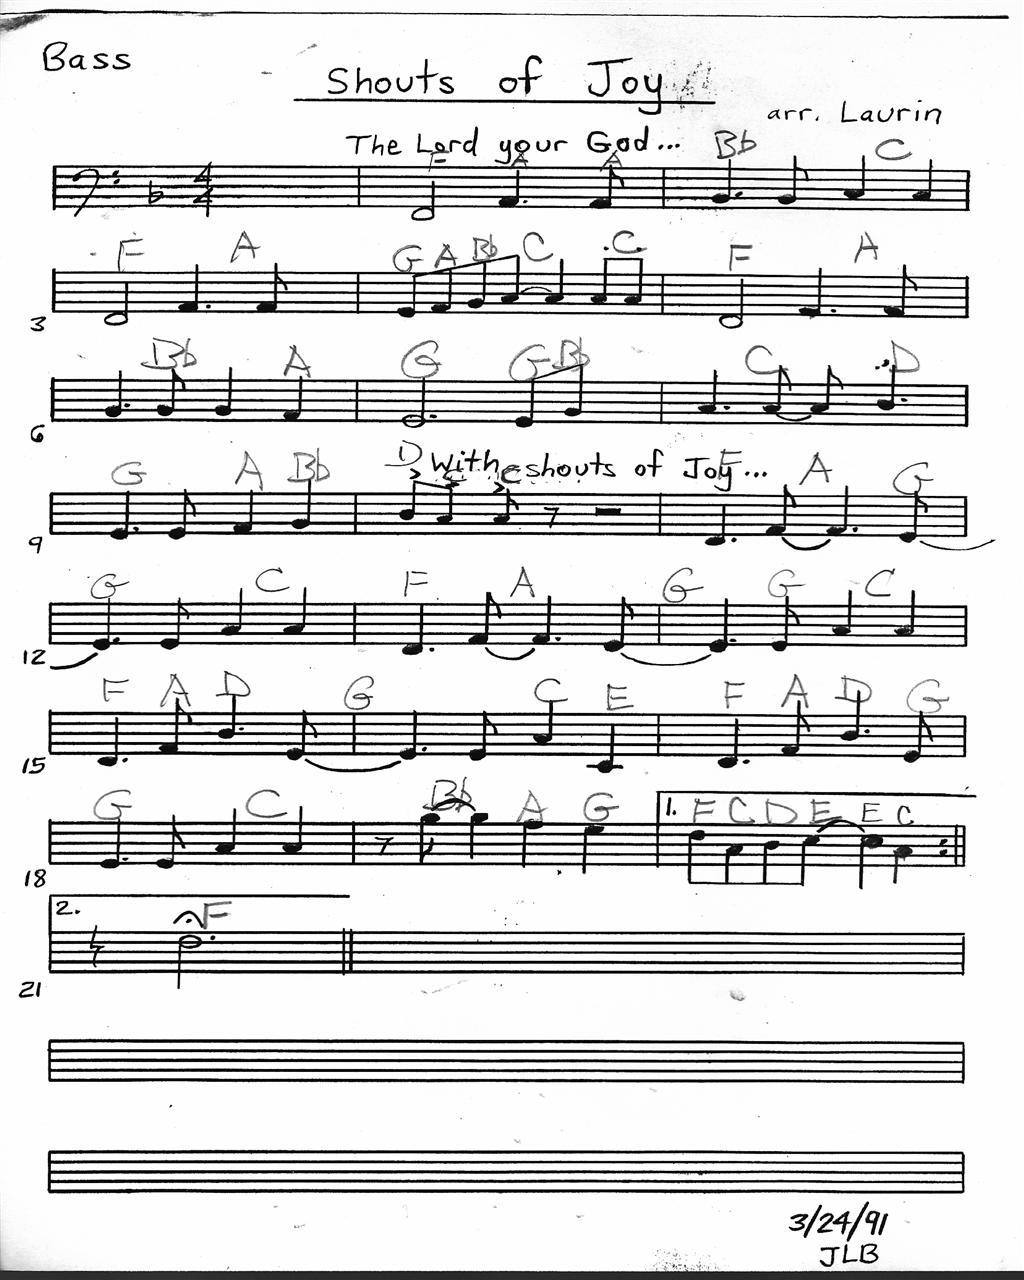 Bass
Shouts of Joy
arr. Laurin
The Lord your God...
F A A Bb C
4
4
F A G A Bb C C F A
3
Bb A G G Bb C D
6
D With shouts of Joy...
G A Bb C C F A G
9
G C F A G G C
12
F A D G C E F A D G
15
G C Bb A G 1. F C D E E C
18
2. F
21
3/24/91
JLB